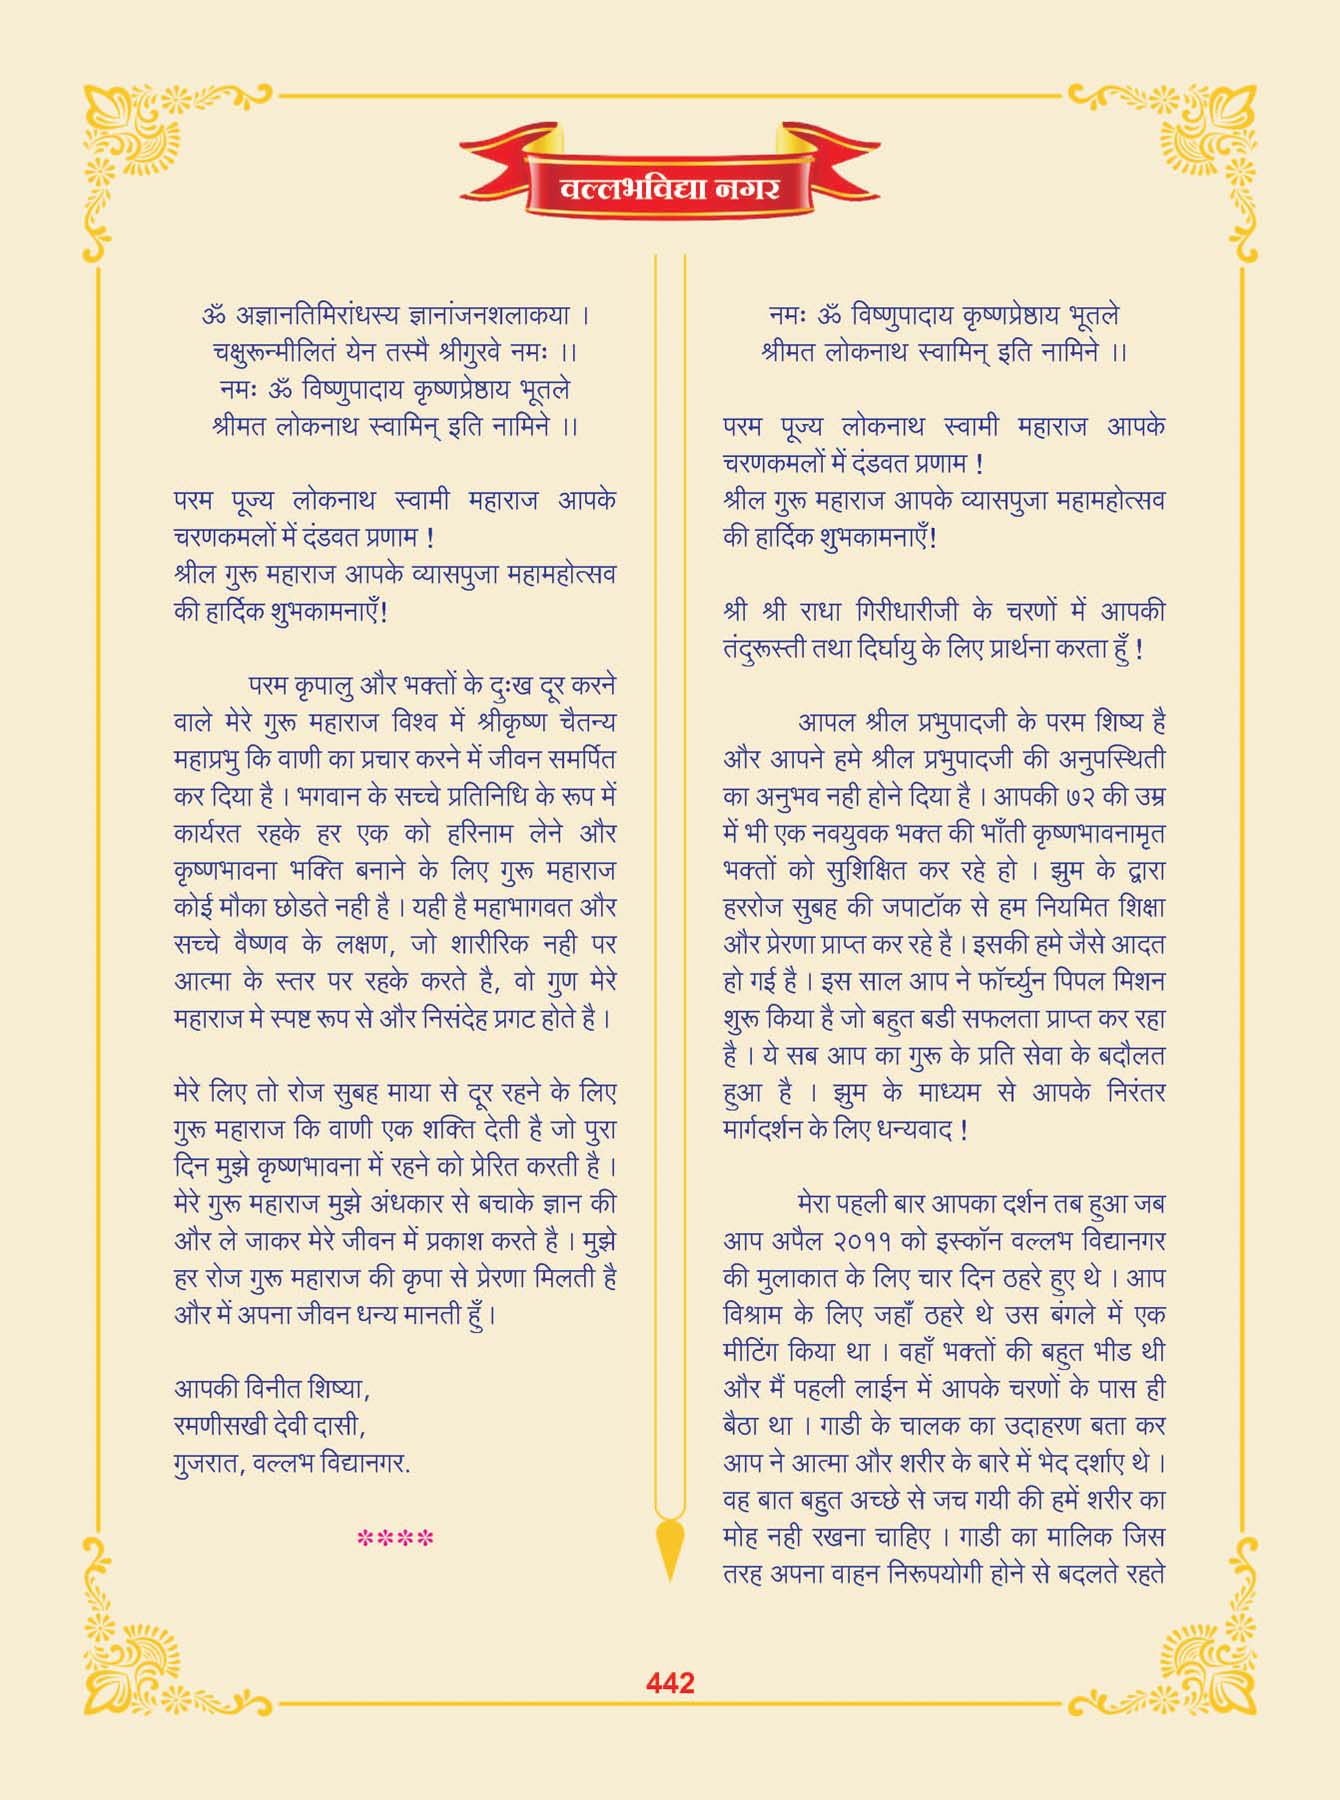 वल्लभविद्या नगर
ॐ अज्ञानतिमिरांधस्य ज्ञानांजनशलाकया ।
चक्षुरून्मीलितं येन तस्मै श्रीगुरवे नमः ।।
नमः ॐ विष्णुपादाय कृष्णप्रेष्ठाय भूतले
श्रीमत लोकनाथ स्वामिन् इति नामिने ।।
परम पूज्य लोकनाथ स्वामी महाराज आपके
चरणकमलों में दंडवत प्रणाम !
श्रील गुरू महाराज आपके व्यासपुजा महामहोत्सव
की हार्दिक शुभकामनाएँ!
परम कृपालु और भक्तों के दुःख दूर करने
वाले मेरे गुरू महाराज विश्व में श्रीकृष्ण चैतन्य
महाप्रभु कि वाणी का प्रचार करने में जीवन समर्पित
कर दिया है । भगवान के सच्चे प्रतिनिधि के रूप में
कार्यरत रहके हर एक को हरिनाम लेने और
कृष्णभावना भक्ति बनाने के लिए गुरू महाराज
कोई मौका छोडते नही है । यही है महाभागवत और
सच्चे वैष्णव के लक्षण, जो शारीरिक नही पर
आत्मा के स्तर पर रहके करते है, वो गुण मेरे
महाराज मे स्पष्ट रूप से और निसंदेह प्रगट होते है ।
मेरे लिए तो रोज सुबह माया से दूर रहने के लिए
गुरू महाराज कि वाणी एक शक्ति देती है जो पुरा
दिन मुझे कृष्णभावना में रहने को प्रेरित करती है ।
मेरे गुरू महाराज मुझे अंधकार से बचाके ज्ञान की
और ले जाकर मेरे जीवन में प्रकाश करते है । मुझे
हर रोज गुरू महाराज की कृपा से प्रेरणा मिलती है
और में अपना जीवन धन्य मानती हुँ ।
आपकी विनीत शिष्या,
रमणीसखी देवी दासी,
गुजरात, वल्लभ विद्यानगर.
****
नमः ॐ विष्णुपादाय कृष्णप्रेष्ठाय भूतले
श्रीमत लोकनाथ स्वामिन् इति नामिने ।।
परम पूज्य लोकनाथ स्वामी महाराज आपके
चरणकमलों में दंडवत प्रणाम !
श्रील गुरू महाराज आपके व्यासपुजा महामहोत्सव
की हार्दिक शुभकामनाएँ!
श्री श्री राधा गिरीधारीजी के चरणों में आपकी
तंदुरूस्ती तथा दिर्घायु के लिए प्रार्थना करता हुँ !
आपल श्रील प्रभुपादजी के परम शिष्य है
और आपने हमे श्रील प्रभुपादजी की अनुपस्थिती
का अनुभव नही होने दिया है । आपकी ७२ की उम्र
में भी एक नवयुवक भक्त की भाँती कृष्णभावनामृत
भक्तों को सुशिक्षित कर रहे हो । झुम के द्वारा
हररोज सुबह की जपाटॉक से हम नियमित शिक्षा
और प्रेरणा प्राप्त कर रहे है । इसकी हमे जैसे आदत
हो गई है । इस साल आप ने फॉर्च्युन पिपल मिशन
शुरू किया है जो बहुत बडी सफलता प्राप्त कर रहा
है । ये सब आप का गुरू के प्रति सेवा के बदौलत
हुआ है । झुम के माध्यम से आपके निरंतर
मार्गदर्शन के लिए धन्यवाद !
मेरा पहली बार आपका दर्शन तब हुआ जब
आप अपैल २०११ को इस्कॉन वल्लभ विद्यानगर
की मुलाकात के लिए चार दिन ठहरे हुए थे । आप
विश्राम के लिए जहाँ ठहरे थे उस बंगले में एक
मीटिंग किया था । वहाँ भक्तों की बहुत भीड थी
और मैं पहली लाईन में आपके चरणों के पास ही
बैठा था । गाडी के चालक का उदाहरण बता कर
आप ने आत्मा और शरीर के बारे में भेद दर्शाए थे ।
वह बात बहुत अच्छे से जच गयी की हमें शरीर का
मोह नही रखना चाहिए । गाडी का मालिक जिस
तरह अपना वाहन निरूपयोगी होने से बदलते रहते
442